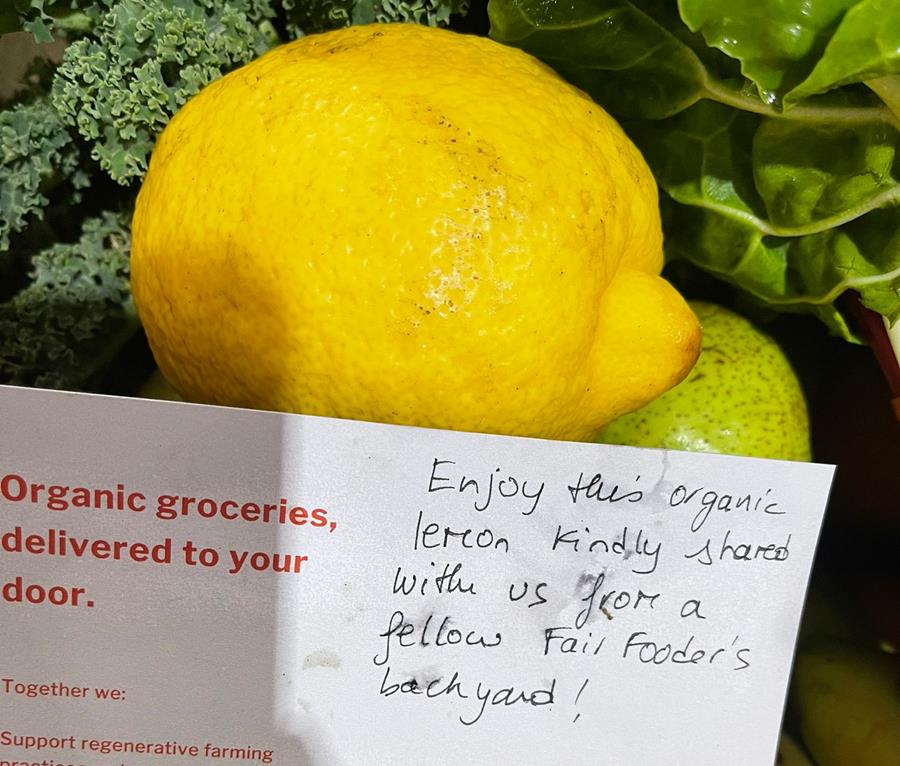 Organic groceries,
delivered to your
door.
Together we:
Support regenerative farming
Enjoy this organic
lemon kindly shared
with us from a
fellow Fair Fooder's
backyard!